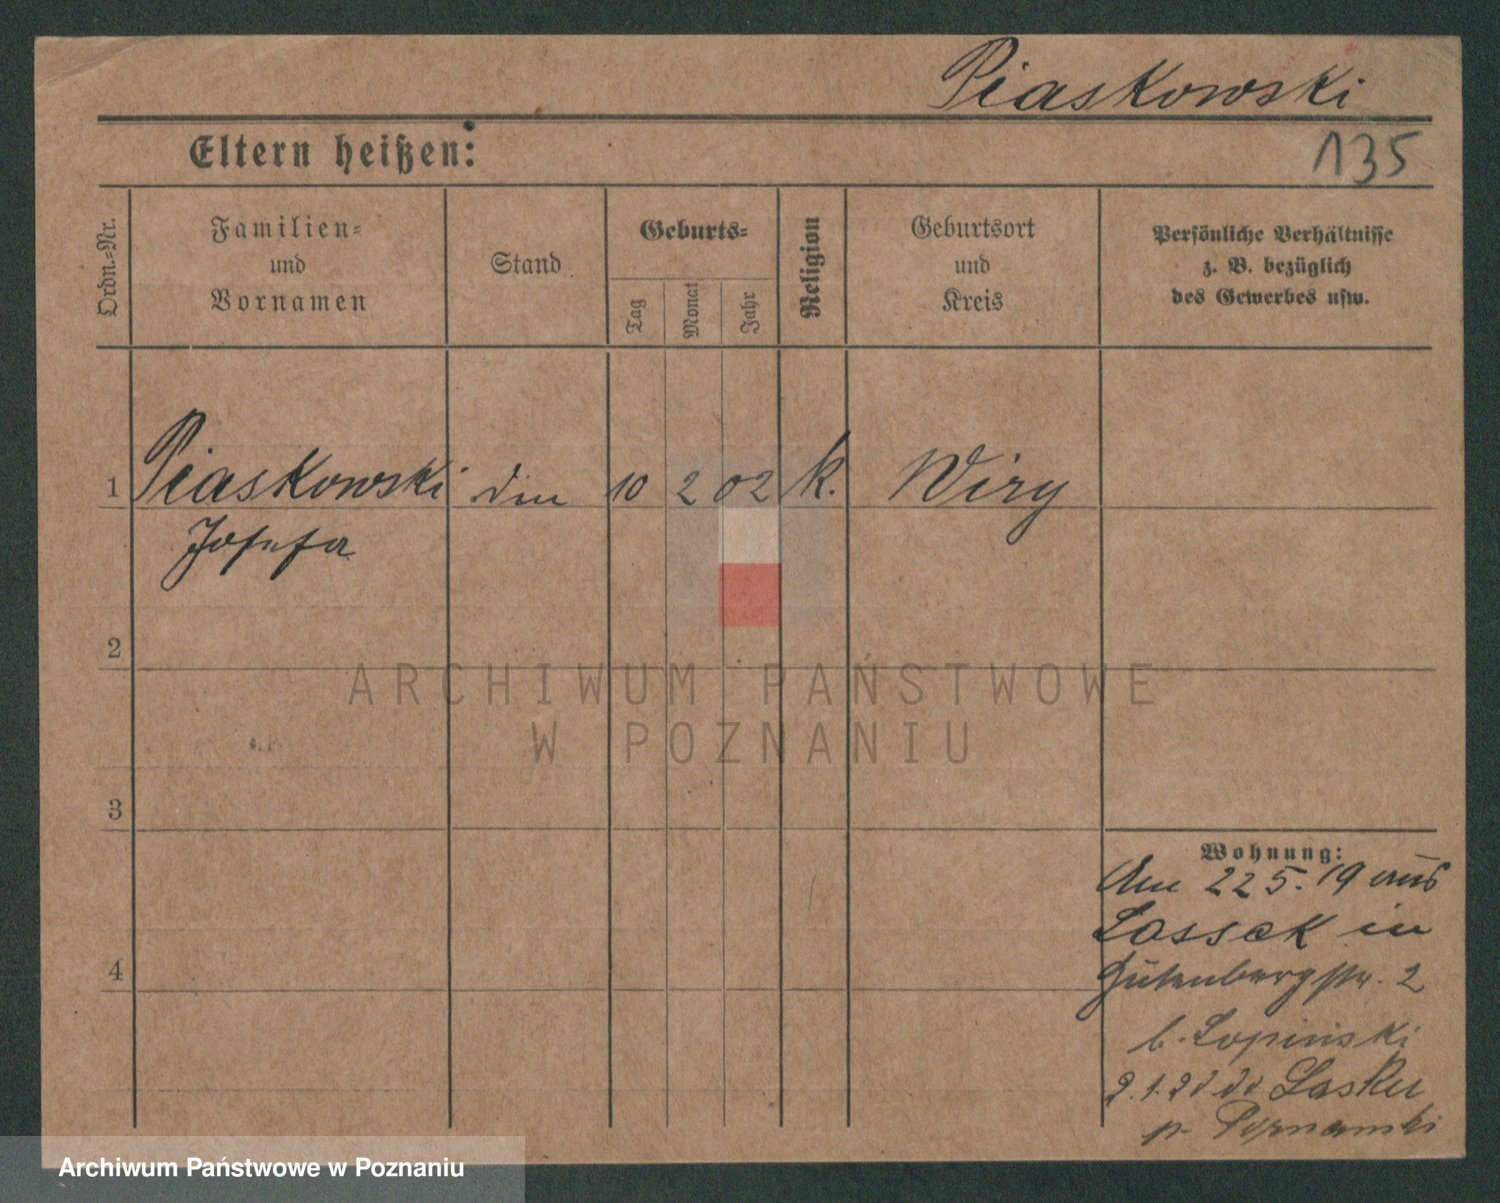 Piaskowski
Eltern heißen:
135
Ordn.-Nr.
Familien-
und
Vornamen
Stand
Geburts-
Tag
Monat
Jahr
Religion
Geburtsort
und
Kreis
Persönliche Verhältnisse
z. B. bezüglich
des Gewerbes usw.
1 Piaskowski 10 2 02 k. Wiry
Josefa
2
3
4
Wohnung:
Am 22 5. 19 aus
Lassek in
Gutenbergstr. 2
b. Lopinski
2.1.20
ARCHIWUM PAŃSTWOWE
W POZNANIU
Archiwum Państwowe w Poznaniu